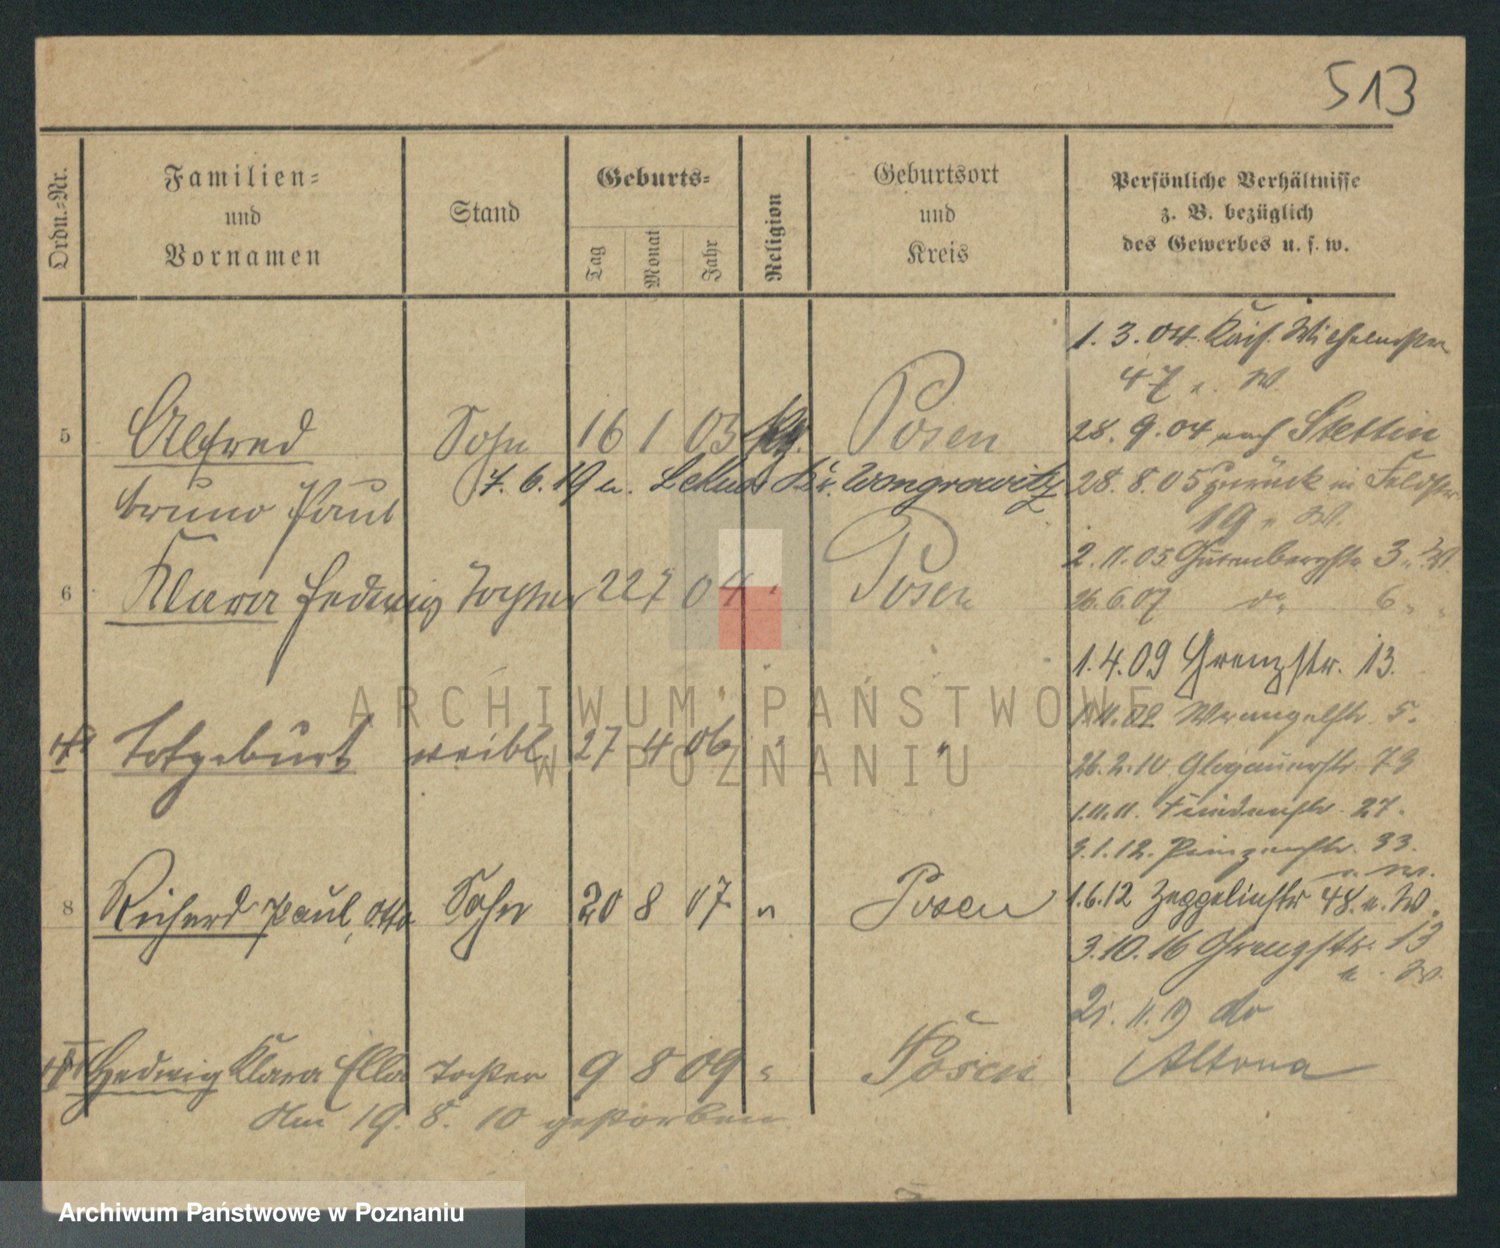 513
Ordn.-Nr.
Familien-
und
Vornamen
Stand
Geburts-
Tag
Monat
Jahr
Religion
Geburtsort
und
Kreis
Persönliche Verhältnisse
z. B. bezüglich
des Gewerbes u. s. w.
1.3.04. Kais. Wilhelmstr.
47 W
5 Alfred Sohn 16 1 03 Posen
28.9.04 nach Stettin
Bruno Paul
7.6.19 n. Kr. Wongrowitz
28.8.05 zurück in Feldstr.
19 W.
2.11.05 Gutenbergstr. 3 W
6 Klara Hedwig Tochter 22 7 04 " Posen
26.6.07 do 6 "
1.4.09 Grenzstr. 13.
Wrangelstr. 5.
Totgeburt weibl. 27 4 06 " "
26.2.10 Glogauerstr. 79
1.11.11. 27.
3.1.12. Prinzenstr. 33.
8 Richard Paul, Otto Sohn 20 8 07 " Posen
1.6.12 Zeppelinstr. 48. u. W.
3.10.16 Grenzstr. 13
W.
21.11.19 do
Hedwig Klara Ella Tochter 9 8 09 " Posen
Altona
Am 19. 8. 10 gestorben.
ARCHIWUM PAŃSTWOWE
W POZNANIU
Archiwum Państwowe w Poznaniu